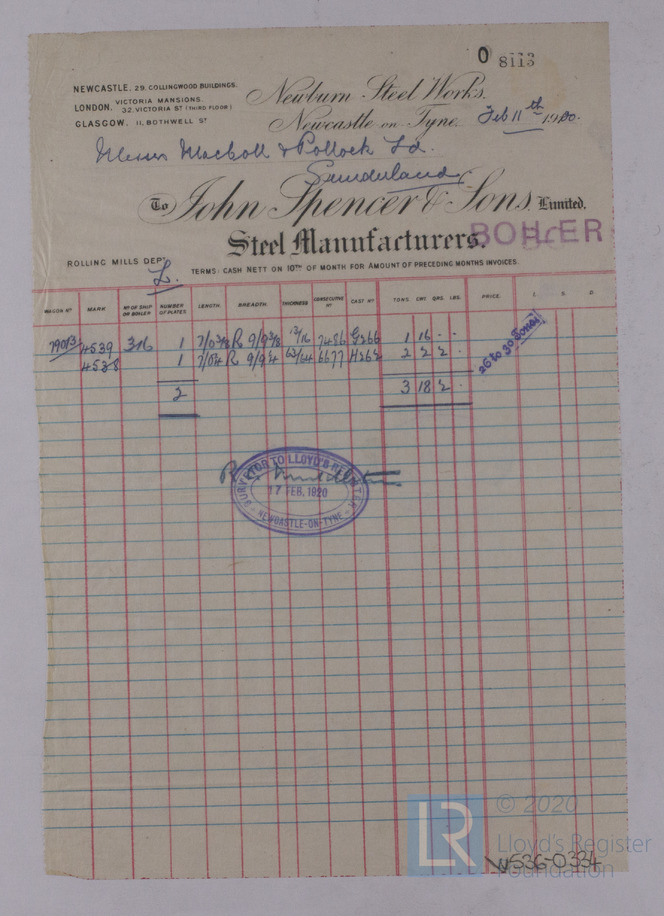 0 8113
NEWCASTLE. 29. COLLINGWOOD BUILDINGS.
LONDON. VICTORIA MANSIONS. 32. VICTORIA ST (THIRD FLOOR)
GLASGOW. 11, BOTHWELL ST
Newburn Steel Works.
Newcastle on Tyne. Feb 11th 1920.
Messrs MacColl & Pollock Ld.
Sunderland
To John Spencer & Sons, Limited,
Steel Manufacturers.
BOILER
ROLLING MILLS DEPT
L.
TERMS: CASH NETT ON 10TH OF MONTH FOR AMOUNT OF PRECEDING MONTHS INVOICES.
WAGON NO MARK NO OF SHIP OR BOILER NUMBER OF PLATES LENGTH. BREADTH. THICKNESS CONSECUTIVE NO CAST NO TONS. CWT. QRS. LBS. PRICE. £. S. D.
79013 4539 316 1 7/0 3/8 R 9/9 3/8 12/16 7486 G266 1 16 - -
4538 1 7/0 4 R 9/9 4 63/64 6677 H262 2 2 2 -
2 3 18 2 -
26 to 30 Tons
SURVEYOR TO LLOYD'S REGISTER
17 FEB. 1920
NEWCASTLE-ON-TYNE
LR
© 2020
Lloyd's Register
Foundation
W536-0334